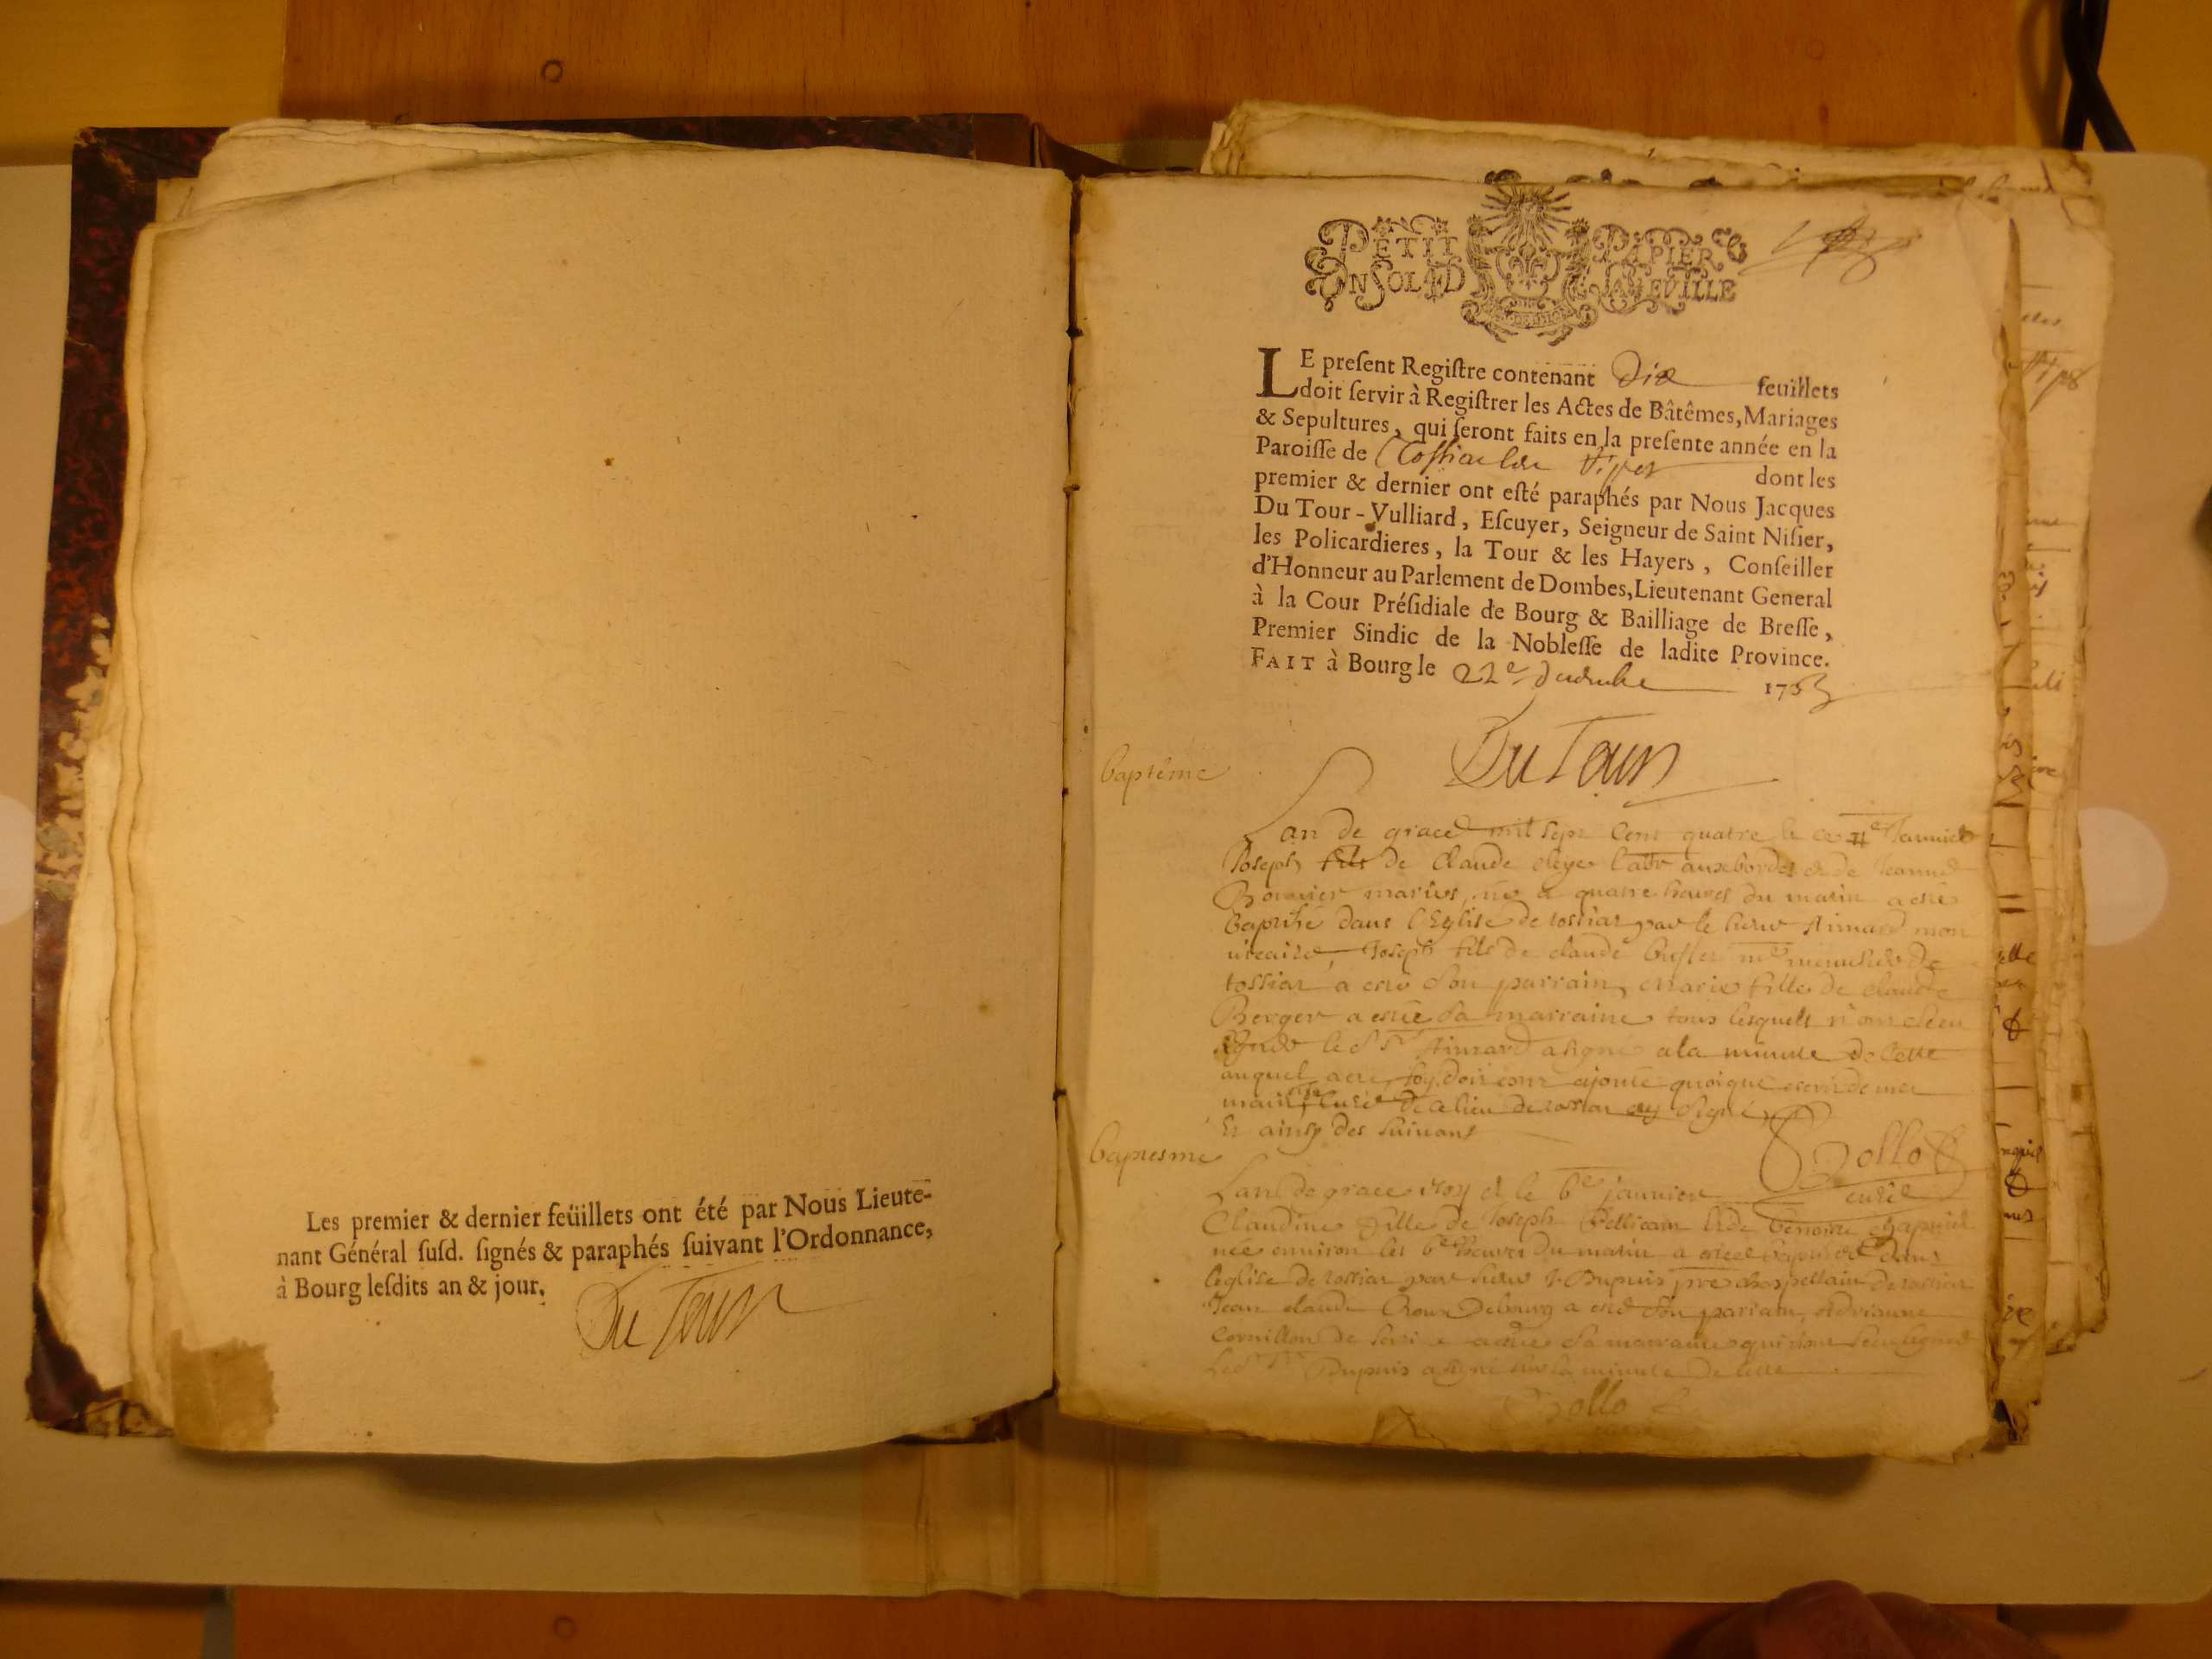 Les premier & dernier feüillets ont été par Nous Lieute-
nant Général ſuſd. ſignés & paraphés ſuivant l'Ordonnance,
à Bourg leſdits an & jour.
Du Tour
PETIT PAPIER
UN SOL 4 D LA FEUILLE
LE preſent Regiſtre contenant Dix feuillets
doit ſervir à Regiſtrer les Actes de Bâtêmes, Mariages
& Sepultures, qui ſeront faits en la preſente année en la
Paroiſſe de dont les
premier & dernier ont eſté paraphés par Nous Jacques
Du Tour-Vulliard, Eſcuyer, Seigneur de Saint Niſier,
les Policardieres, la Tour & les Hayers, Conſeiller
d'Honneur au Parlement de Dombes, Lieutenant General
à la Cour Préſidiale de Bourg & Bailliage de Breſſe,
Premier Sindic de la Nobleſſe de ladite Province.
FAIT à Bourg le 22e Decembre 1703
Du Tour
baptême
Lan de grace mil sept cent quatre le Janvier
Joseph fils de Claude aux bordes et de Jeanne
mariés, né a quatre heures du matin a esté
baptisé dans l'Eglise de tossiat par le sieur Aimard mon
vicaire, Joseph fils de claude de
tossiat a esté son parrain, marie fille de claude
Berger a estée sa marraine tous lesquels n'ont sceu
signer le Sr Aimard a signé a la minute de cette
auquel acte foy doit estre ajoutée quoique escrit de ma
main curé de ce lieu de tossiat signé
Et ainsy des suivans
Gollo
curé
baptesme
Lan de grace et le 6e janvier
Claudine fille de Joseph Pellicain
née environ les 6 heures du matin a estée baptisée dans
leglise de tossiat par sieur Dupuis pre chappellain de tossiat
Jean claude a esté son parrain, Adrianne
Cornillon de a estée sa marraine qui n'ont sceu signer
Led Sr Dupuis a signé sur la minute de cette
Gollo